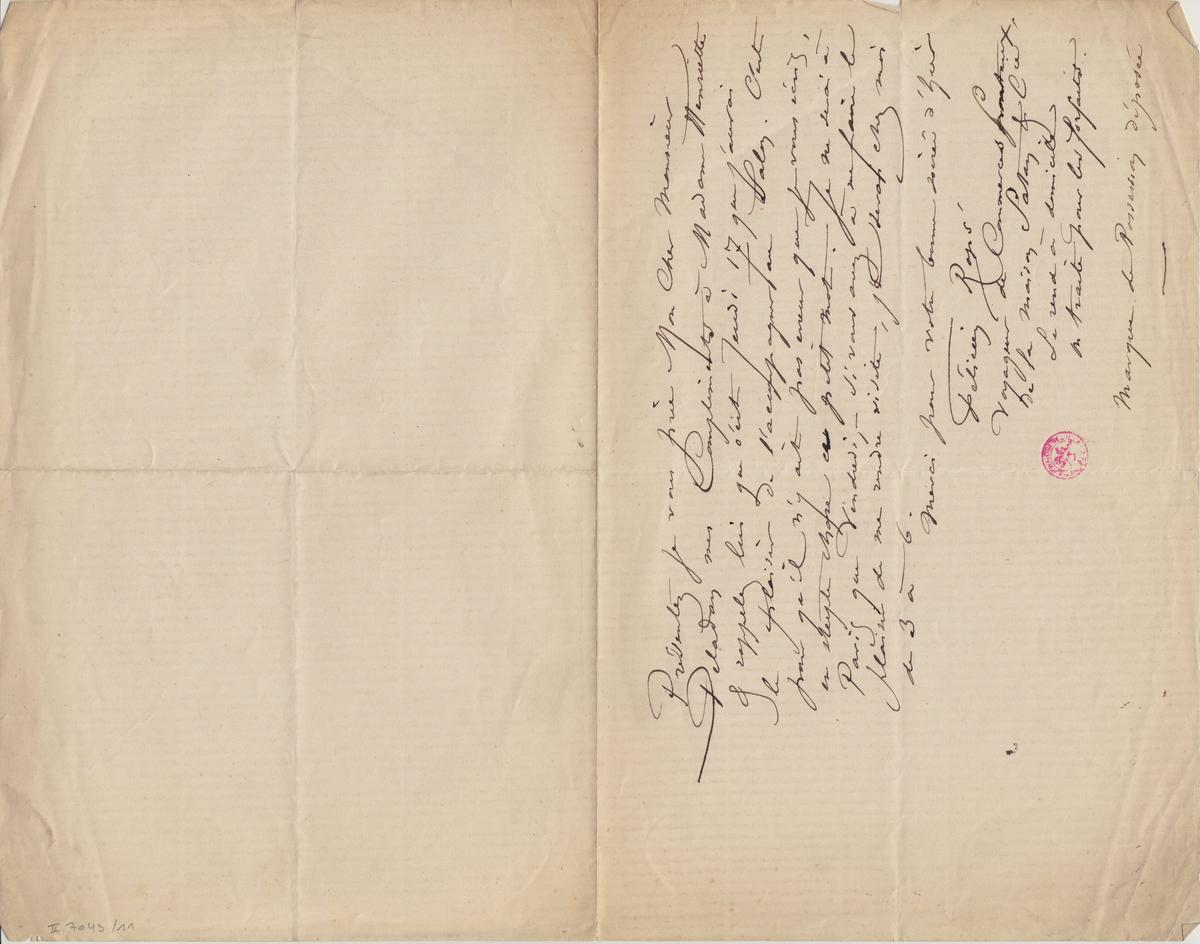 Présentez je vous prie Mon Cher Monsieur
Peladan mes Compliments à Madame Henriette
& rappelez lui que c'est Jeudi 17 que j'aurai
le plaisir de l'accompagner au Palais. C'est
pour qu'il n'y ait pas erreur que je vous écris,
en chaque chose ce petit mot. Je ne serai à
Paris que Vendredi, – si vous avez à me faire le
plaisir de me rendre visite, je serai chez moi
de 3 à 6.
Merci pour votre bonne soirée d'hier
Félicien Rops
Voyageur de Commerces
de la maison Satan & Cie
Se rend à domicile
on traite pour les forfaits.
Marque de Possession déposée
II 7043/11